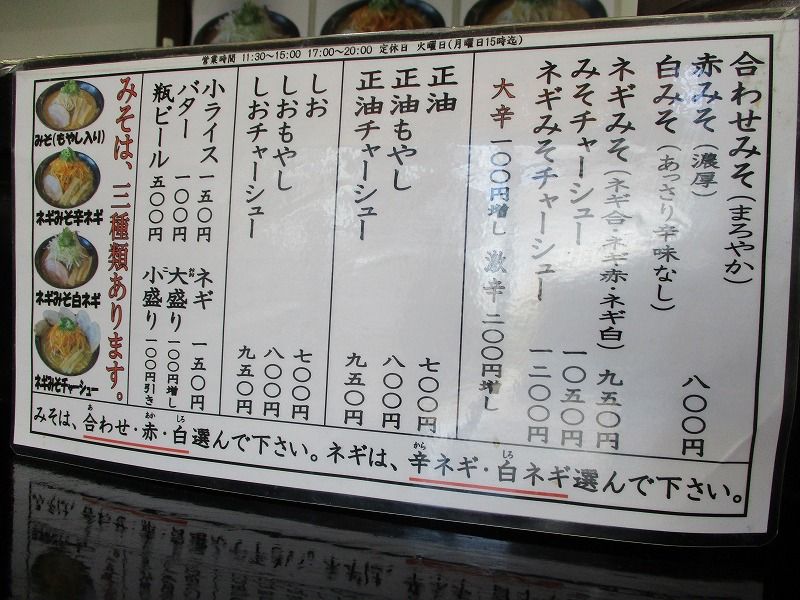 営業時間 11:30～15:00 17:00～20:00 定休日 火曜日(月曜日15時迄)
合わせみそ(まろやか)
赤みそ(濃厚) 八〇〇円
白みそ(あっさり辛味なし)
ネギみそ(ネギ合・ネギ赤・ネギ白) 九五〇円
みそチャーシュー 一〇五〇円
ネギみそチャーシュー 一二〇〇円
大辛 一〇〇円増し 激辛 二〇〇円増し
正油 七〇〇円
正油もやし 八〇〇円
正油チャーシュー 九五〇円
しお 七〇〇円
しおもやし 八〇〇円
しおチャーシュー 九五〇円
小ライス 一五〇円 ネギ 一五〇円
バター 一〇〇円 大盛り 一〇〇円増
瓶ビール 五〇〇円 小盛り 一〇〇円引き
みそは、三種類あります。
みそ(もやし入り)
ネギみそ辛ネギ
ネギみそ白ネギ
ネギみそチャーシュー
みそは、合わせ・赤・白選んで下さい。ネギは、辛ネギ・白ネギ選んで下さい。